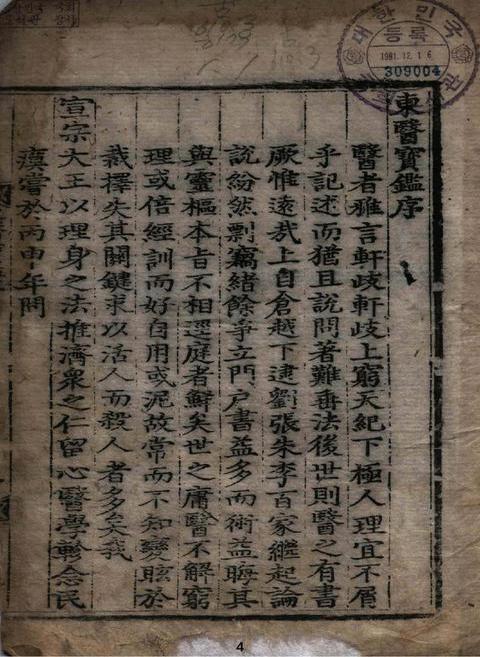 東醫寶鑑序
醫者雅言軒歧軒歧上窮天紀下極人理宜不屑
乎記述而猶且說問著難垂法後世則醫之有書
厥惟遠哉上自倉越下逮劉張朱李百家繼起論
說紛然剽竊緖餘爭立門戶書益多而術益晦其
與靈樞本旨不相逕庭者鮮矣世之庸醫不解窮
理或倍經訓而好自用或泥故常而不知變眩於
裁擇失其關鍵求以活人而殺人者多矣我
宣宗大王以理身之法推濟衆之仁留心醫學軫念民
瘼嘗於丙申年間
대한민국
등록
1981.12.16
309004
4